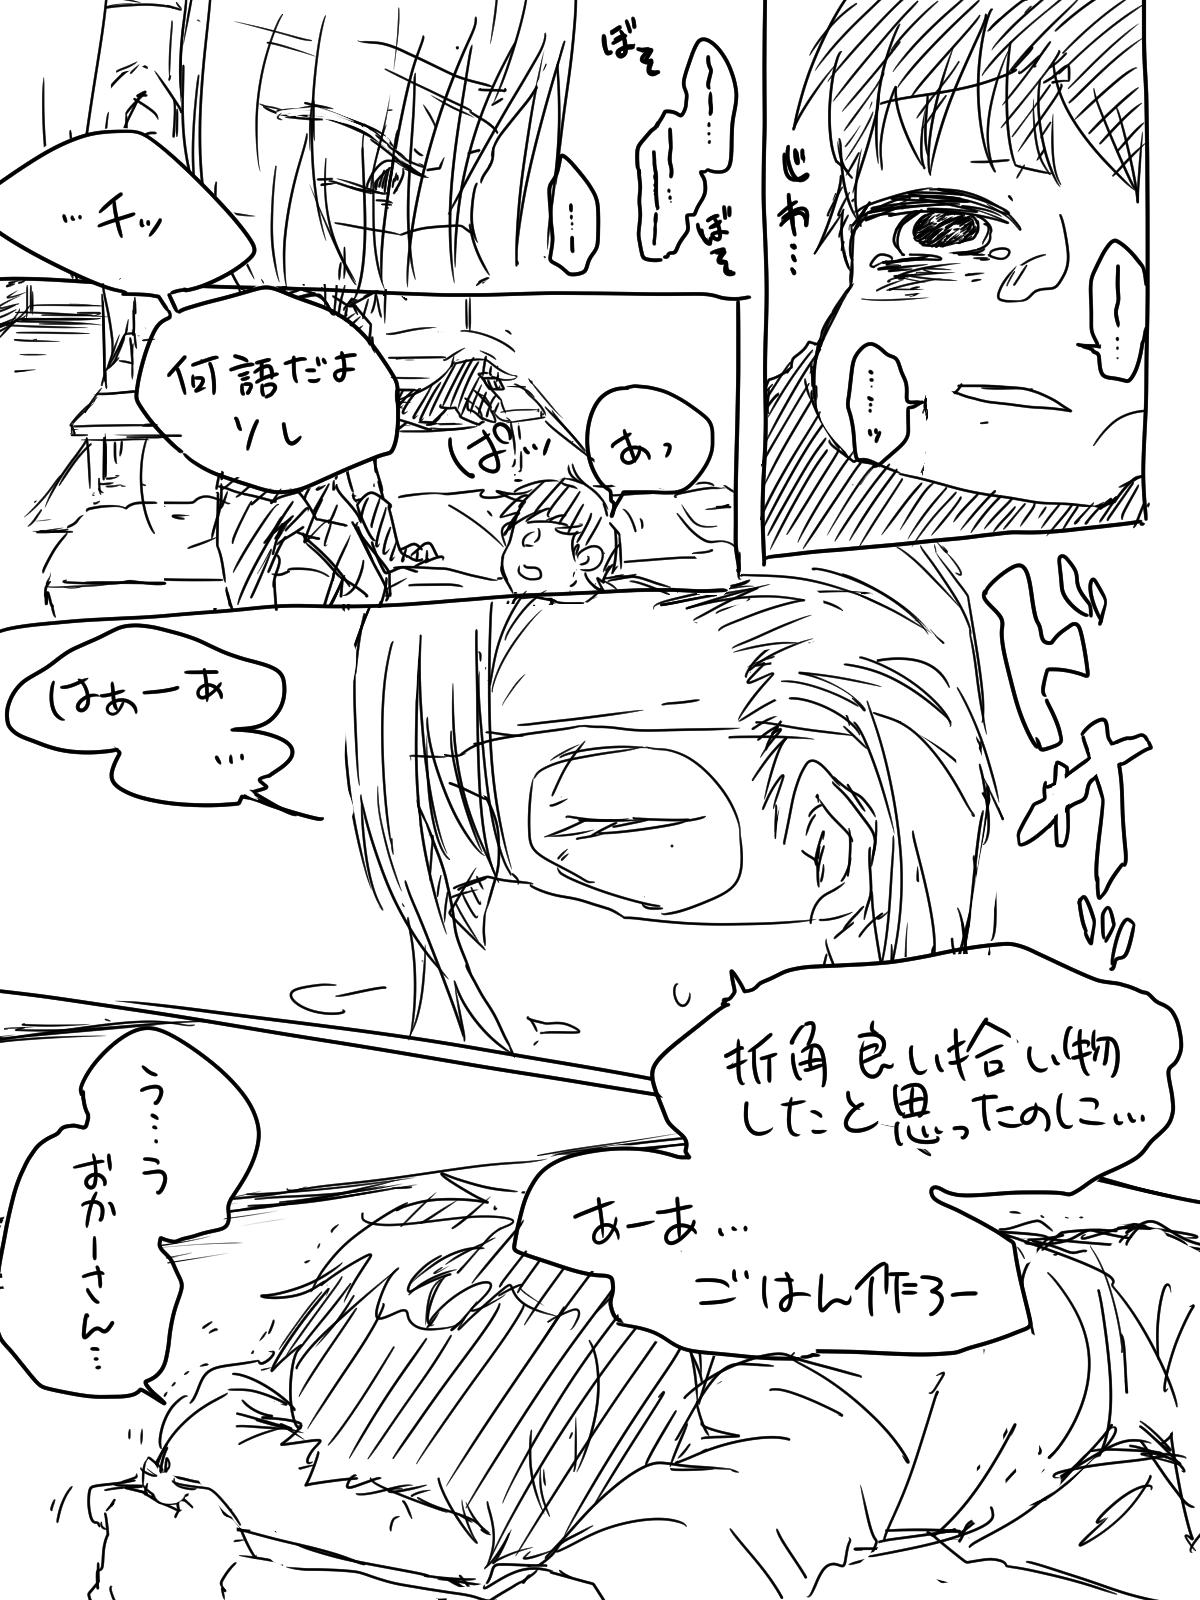 じわ…
ぼそ
ぼそ
…チッ
何語だよ
ソレ
ぱッ
あっ
ドサッ
はぁーあ
…
折角良い拾い物
したと思ったのに…
あーあ…
ごはん作ろー
う…う
おかーさん…